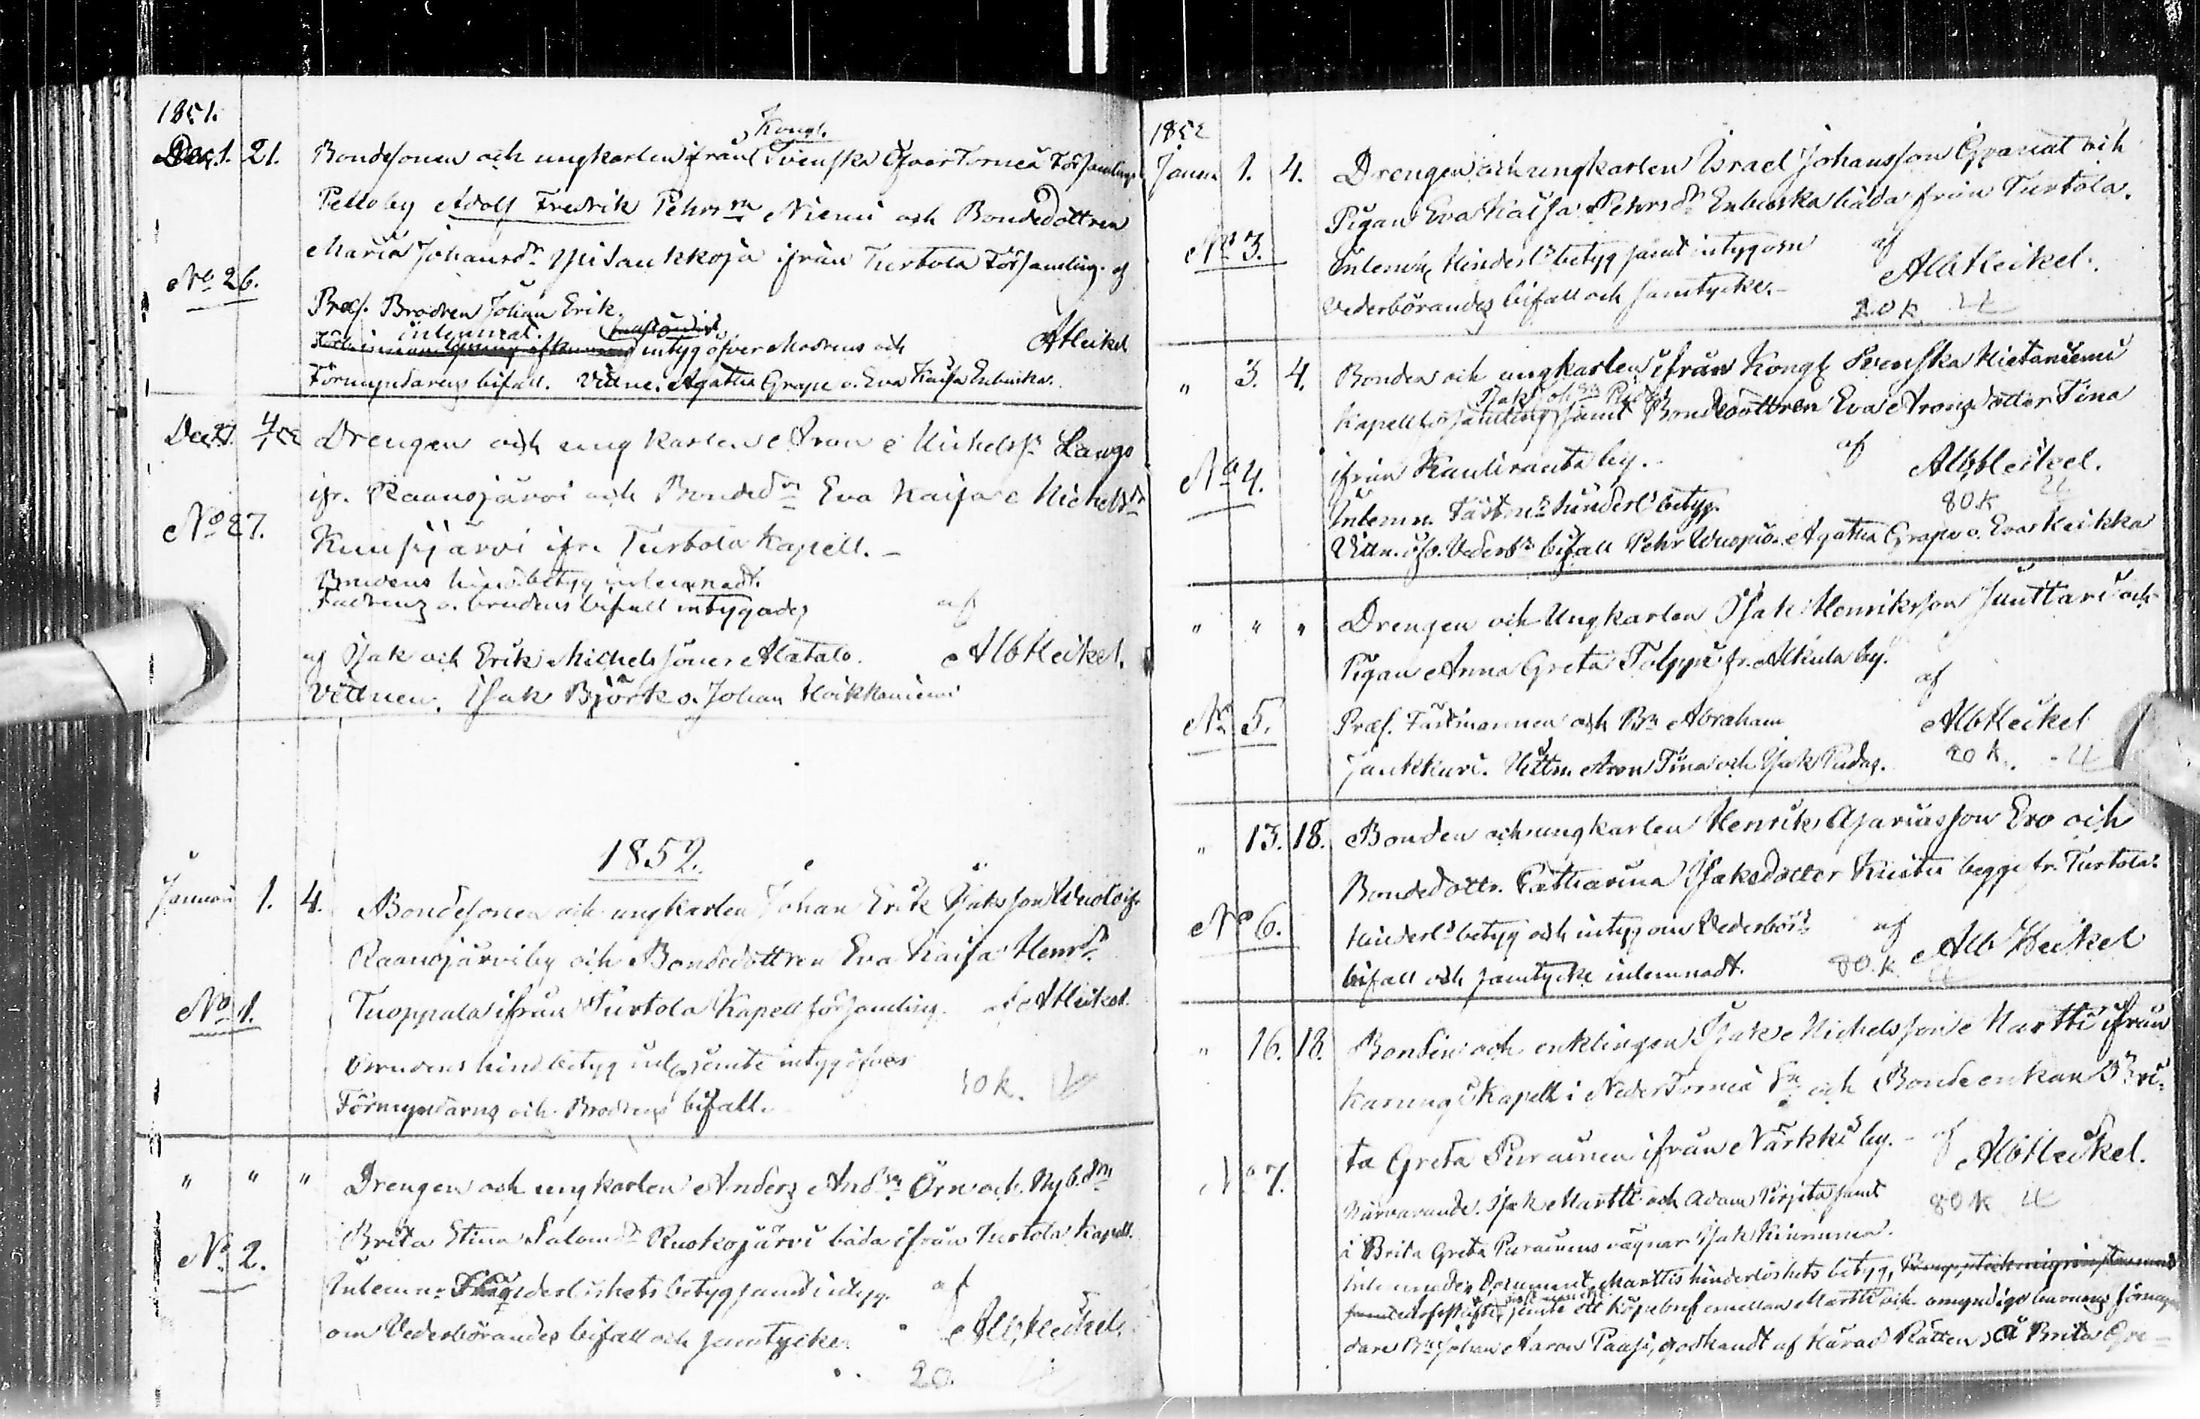 1851.
Dec. 21. Bondesonen och ungkarlen ifrån Kongl. Svenska Öfver Torneå Församlings
Pello by Adolf Fredrik Pehrsn Niemi och Bondedottren
Maria Johansdr ifrån Turtola Församling. af
No 26.
Præs. Brodren Johan Erik
inlemnat.
intyg öfver Modrens och AHeikel
Förmyndarens bifall. Vittne. Agatha Grape o. Eva Kaisa Enbuska.
Drengen och ungkarlen Aron Michelss Lango
ifr. Raanojärvi och Bondedn Eva Kaisa Michelsdr
No 27.
ifr. Turtola Kapell. –
Brudens hind.betyg inlemnadt.
Fadrens o. brudens bifall intygades af
af Isak och Erik Michelssöner Alatalo. AlbHeikel.
Vittnen. Isak Björk o. Johan Heikkaniemi
1852.
Januari 1. 4. Bondesonen och ungkarlen Johan Erik Isaksson
Raanojärvi by och Bondedottren Eva Kaisa Henrdr
No 1. Tuoppala ifrån Turtola Kapellförsamling. af AHeikel
Brudens hind.betyg jemte intyg öfver
Förmyndarens och Brodrens bifall. 10 k.
" " " Drengen och ungkarlen Anders Andsn Örn och Nyb.dn
Brita Stina Salomdr Ruskojärvi båda ifrån Turtola Kapell.
No 2.
Inlemn. hinderlöshets betyg samt intyg af
om Vederbörandes bifall och samtycke. AlbHeikel.
20.
1852
Januari 1. 4. Drengen och ungkarlen Israel Johansson Granat och
Pigan Eva Kaisa Pehrsdr Enbuska båda från Turtola.
No 3. Inlemn. Hinderls betyg samt intyg om af
Vederbörandes bifall och samtycke. – AlbHeikel.
20 k
" 3. 4. Bonden och ungkarlen ifrån Kongl Svenska Hietaniemi
Kapellförsamling samt Bondedottren Eva Aronsdotter Tina
No 4. ifrån Kauliranta by. af AlbHeikel.
Inlemn. Fästms hinderls betyg. 80 k
Vittn. Vederbs bifall Pehr Agatha Grape o. Eva Heikka
" " " Drengen och Ungkarlen Isak Henriksson Junttari och
Pigan Anna Greta Tolppi fr. Alkula by. af
No 5. Præs. Fästmannen och Bn Abraham AlbHeikel
Jankkari. Vittn. Aron Tina och Isak Rudas. 20 k.
" 13. 18. Bonden och ungkarlen Henrik Asariasson Ero och
Bondedottr. Catharina Isaksdotter Kristu begge fr. Turtola.
No 6. Hinderls betyg och intyg om Vederbörs af AlbHeikel
bifall och samtycke inlemnadt. 80 k.
" 16. 18. Bonden och enklingen Isak Michelsson Martti ifrån
Karungi Kapell i Neder Torneå Sn och Bondeenkan Bri-
No 7. ta Greta Purainen ifrån Närkki by. – af AlbHeikel.
Närvarande. Isak Martti och Adam samt 80 k
i Brita Greta Purainens vägnar Isak Kinnunen.
inlemnades Document Marttis hinderlöshets betyg,
jemte ett köpebref emellan Martti och omyndiga barnens förmyn-
dare Bn Johan Aaron Paasi, godkändt af Härads Rätten, å Brita Gre-